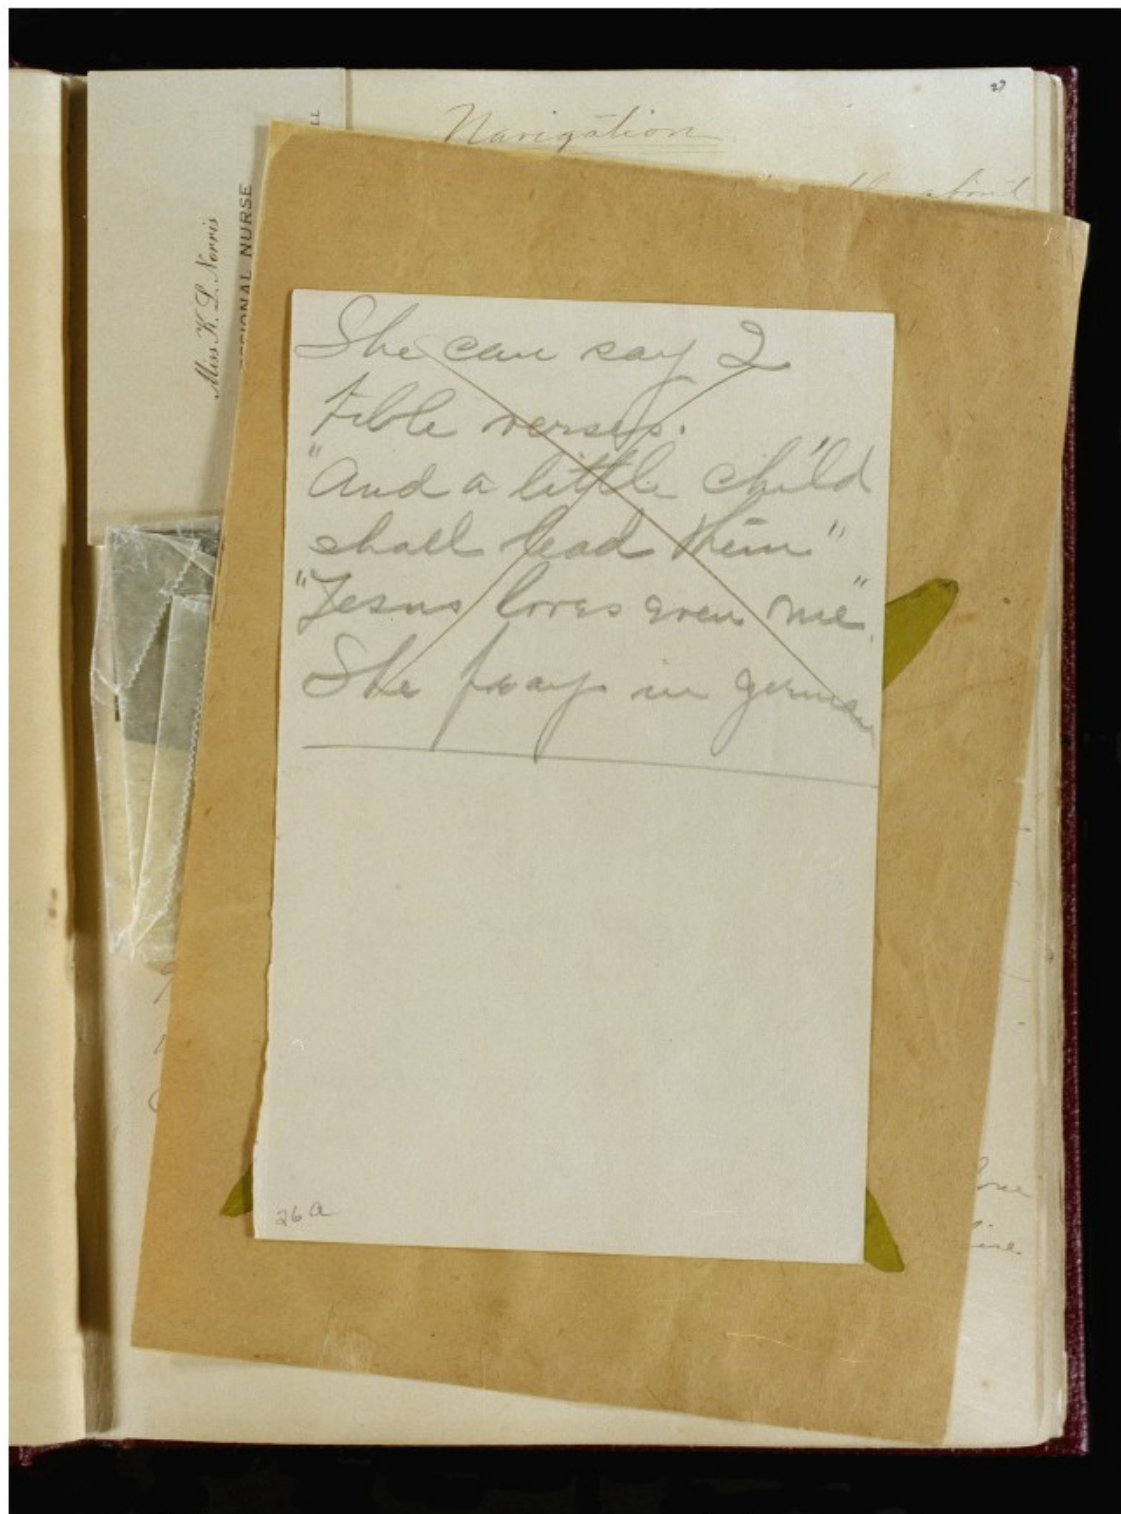 27
Navigation
about
LL
Miss K. L. Norris
SSIONAL NURSE
She can say 2
bible verses.
"And a little child
shall lead them"
"Jesus loves even me".
She prays in german
26a